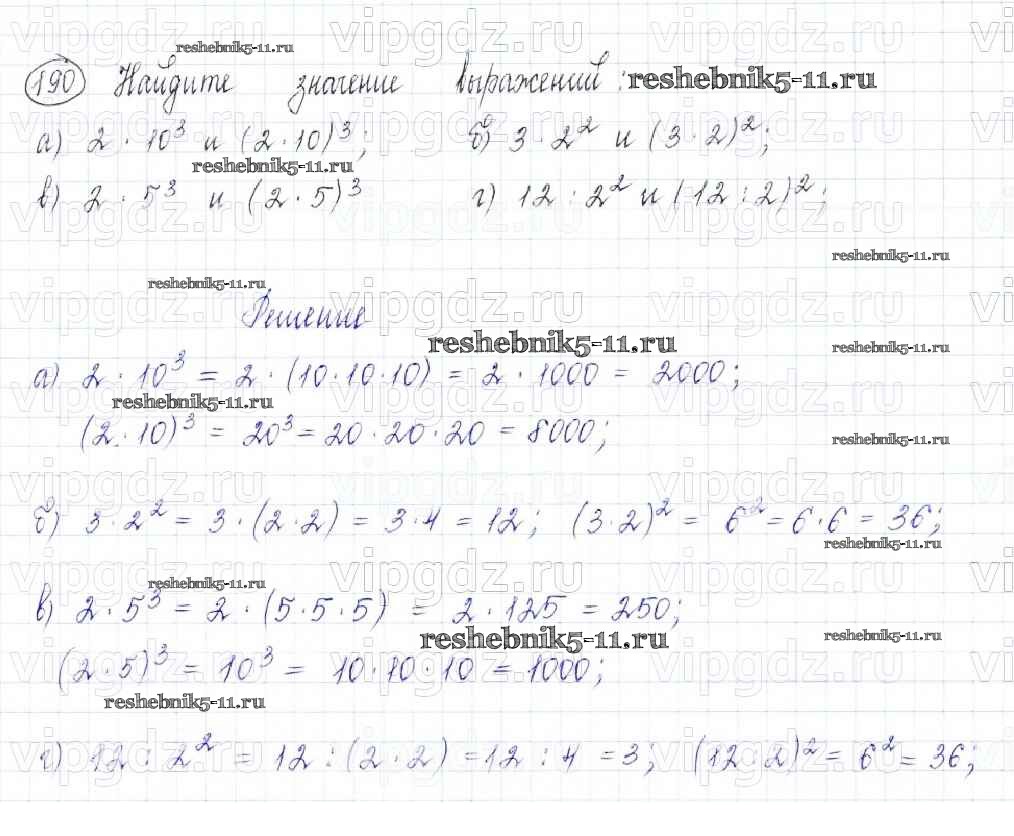 reshebnik5-11.ru
190 Найдите значение выражений: reshebnik5-11.ru
а) 2 · 10³ и (2 · 10)³; б) 3 · 2² и (3 · 2)²;
reshebnik5-11.ru
в) 2 · 5³ и (2 · 5)³ г) 12 : 2² и (12 : 2)²;
reshebnik5-11.ru
reshebnik5-11.ru
Решение
reshebnik5-11.ru
reshebnik5-11.ru
а) 2 · 10³ = 2 · (10·10·10) = 2 · 1000 = 2000;
reshebnik5-11.ru
(2 · 10)³ = 20³ = 20 · 20 · 20 = 8000;
reshebnik5-11.ru
б) 3 · 2² = 3 · (2 · 2) = 3 · 4 = 12; (3 · 2)² = 6² = 6 · 6 = 36;
reshebnik5-11.ru
reshebnik5-11.ru
в) 2 · 5³ = 2 · (5 · 5 · 5) = 2 · 125 = 250;
reshebnik5-11.ru
reshebnik5-11.ru
(2 · 5)³ = 10³ = 10 · 10 · 10 = 1000;
reshebnik5-11.ru
г) 12 : 2² = 12 : (2 · 2) = 12 : 4 = 3; (12 : 2)² = 6² = 36;
vipgdz.ru